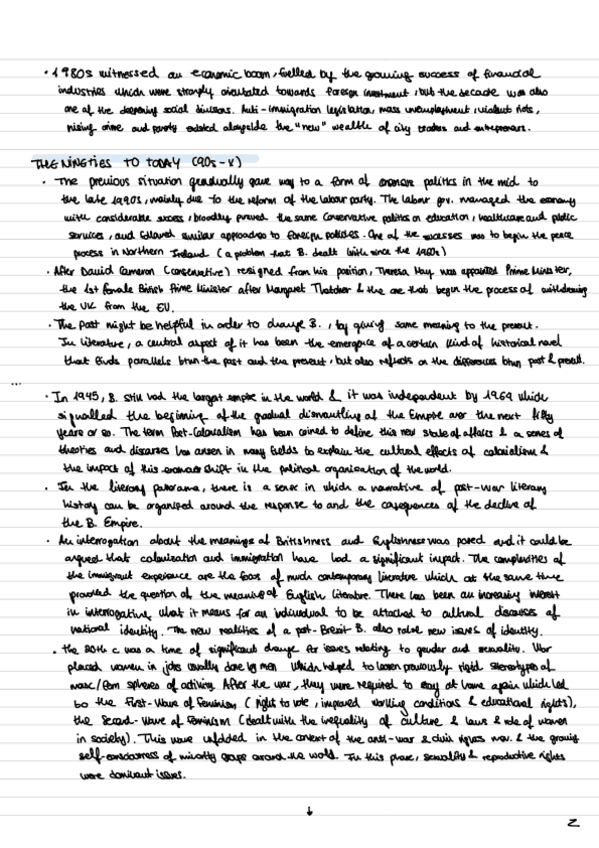 • 1980s witnessed an economic boom, fuelled by the growing success of financial
industries which were strongly orientated towards foreign investment, but the decade was also
one of the deepening social divisions. Anti-immigration legislation, mass unemployment, violent riots,
rising crime and poverty existed alongside the "new" wealth of city traders and entrepreneurs.
THE NINETIES TO TODAY (90s-
• The previous situation gradually gave way to a form of politics in the mid to
the late 1990s, mainly due to the reform of the labour party. The labour gov. managed the economy
with considerable success, broadly pursued the same conservative politics on education, healthcare and public
services, and followed similar approaches to foreign policies. One of the successes was to begin the peace
process in Northern Ireland (a problem that B. dealt with since the 1960s)
• After David Cameron (conservative) resigned from his position, Theresa May was appointed Prime Minister,
the 1st female British Prime Minister after Margaret Thatcher & the one that begin the process of withdrawing
the UK from the EU.
• The past might be helpful in order to change B., by giving some meaning to the present.
In literature, a central aspect of it has been the emergence of a certain kind of historical novel
that finds parallels btwn the past and the present, but also reflects on the differences btwn past & present.
...
• In 1945, B. still had the largest empire in the world & it was independent by 1969 which
signalled the beginning of the gradual dismantling of the Empire over the next fifty
years or so. The term Post-Colonialism has been coined to define this new state of affairs & a series of
theories and discourses has arisen in many fields to explain the cultural effects of colonialism &
the impact of this enormous shift in the political organisation of the world.
• In the literary panorama, there is a sense in which a narrative of post-war literary
history can be organised around the response to and the consequences of the decline of
the B. Empire.
• An interrogation about the meanings of Britishness and Englishness was posed and it could be
argued that colonization and immigration have had a significant impact. The complexities of
the immigrant experience are the focus of much contemporary literature which at the same time
provoked the question of the meaning of English literature. There has been an increasing interest
in interrogating what it means for an individual to be attached to cultural discourses of
national identity. The new realities of a post-Brexit B. also raise new issues of identity.
• The 20th c was a time of significant change for issues relating to gender and sexuality. War
placed women in jobs usually done by men which helped to loosen previously rigid stereotypes of
masc/fem spheres of activity. After the war, they were required to stay at home again which led
to the First-Wave of Feminism (right to vote, improved working conditions & educational rights),
the Second-Wave of Feminism (dealt with the inequality of culture & laws & role of women
in society). This wave unfolded in the context of the anti-war & civil rights mov. & the growing
self-consciousness of minority groups around the world. In this phase, sexuality & reproductive rights
were dominant issues.
↓
2